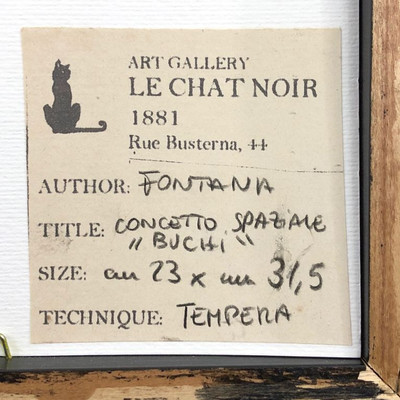 ART GALLERY
LE CHAT NOIR
1881
Rue Busterna, 44
AUTHOR: FONTANA
TITLE: CONCETTO SPAZIALE
"BUCHI"
SIZE: cm 23 x cm 31,5
TECHNIQUE: TEMPERA